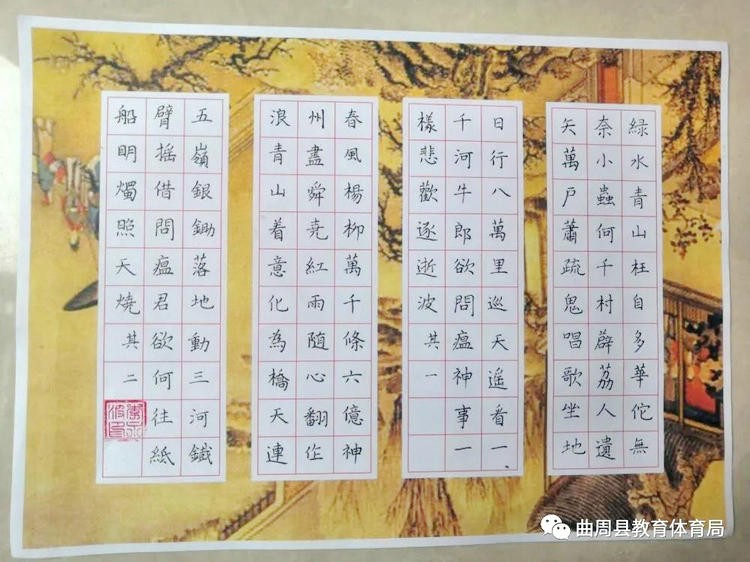 綠水青山枉自多華佗無
奈小蟲何千村薜荔人遺
矢萬戶蕭疏鬼唱歌坐地
日行八萬里巡天遙看一
千河牛郎欲問瘟神事一
樣悲歡逐逝波其一
春風楊柳萬千條六億神
州盡舜堯紅雨隨心翻作
浪青山着意化為橋天連
五嶺銀鋤落地動三河鐵
臂搖借問瘟君欲何往紙
船明燭照天燒其二
曲周县教育体育局